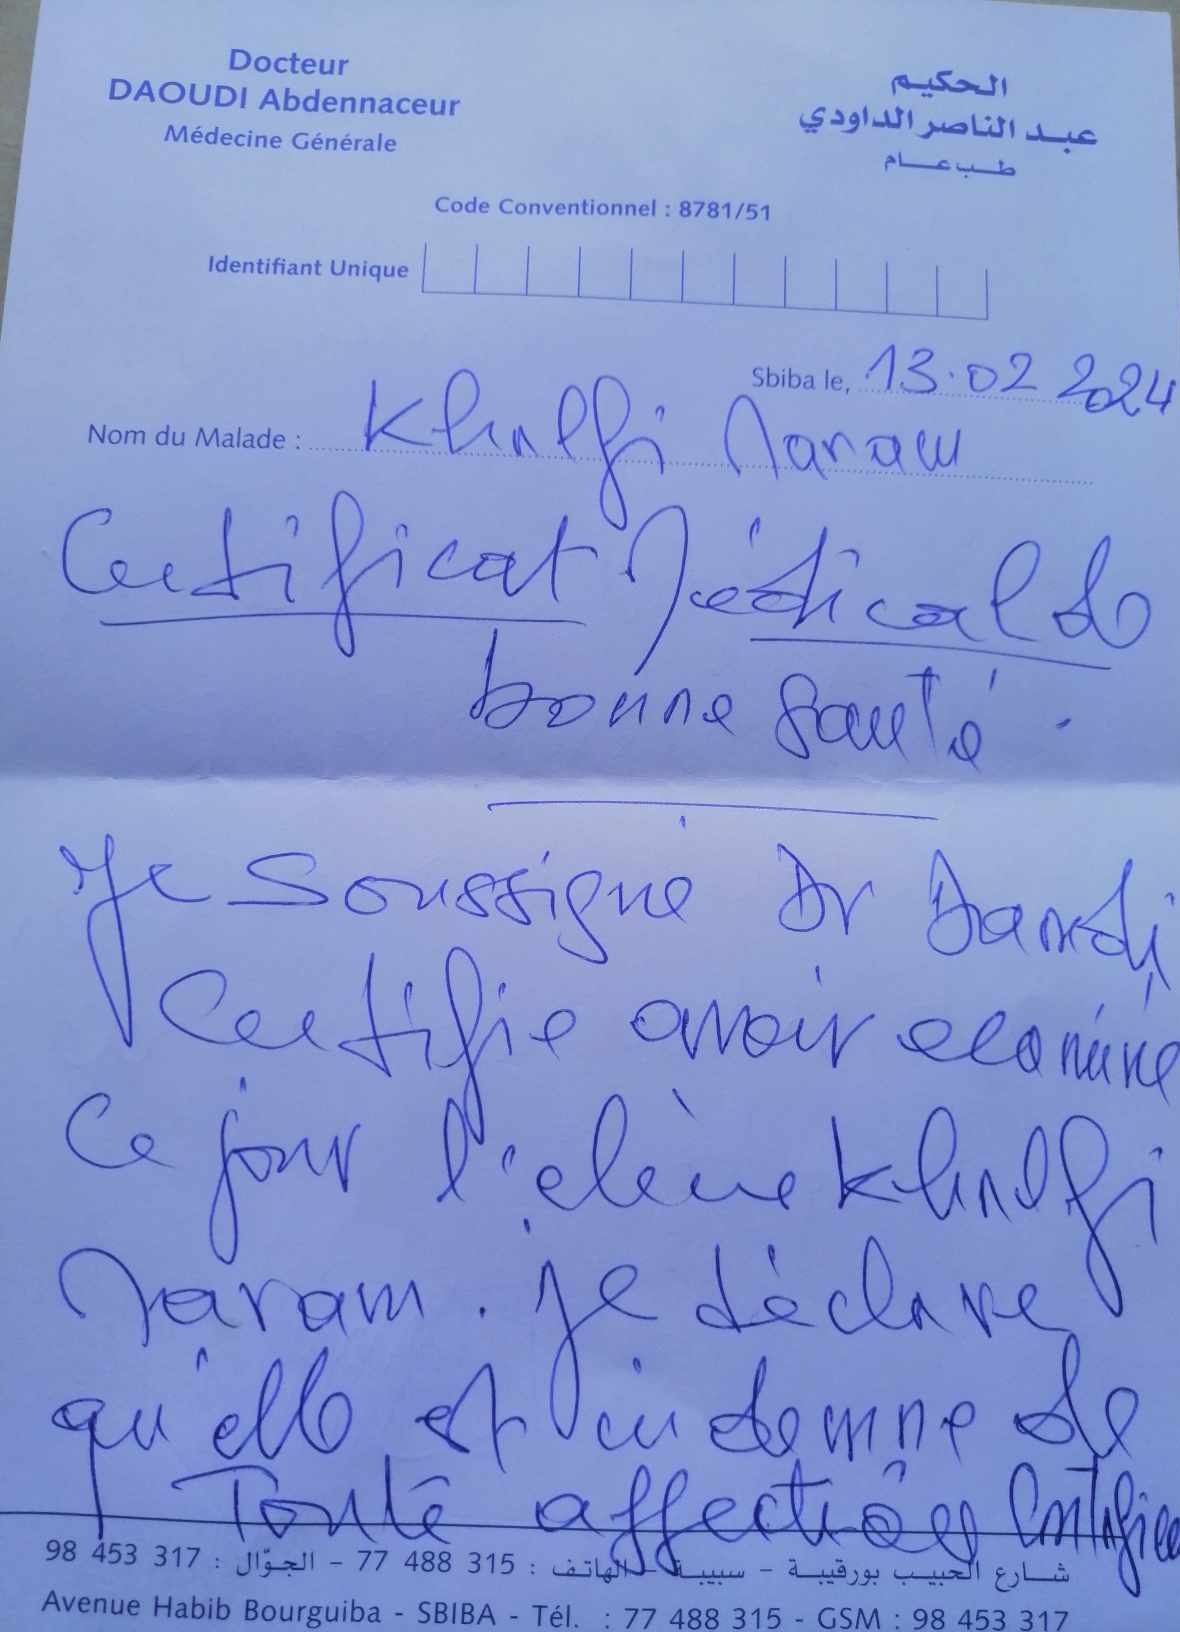 Docteur
DAOUDI Abdennaceur
Médecine Générale
الحكيم
عبد الناصر الداودي
طب عام
Code Conventionnel : 8781/51
Identifiant Unique
Sbiba le, 13.02 2024
Nom du Malade : Khalfi Maram
Certificat Médical de
bonne santé.
Je soussigné Dr Daoudi
Certifie avoir examiné
Ce jour l'elève Khalfi
Maram. je déclare
qu'elle est indemne de
Toute affection
شارع الحبيب بورقيبة - سبيبة - الهاتف : 315 488 77 - الجوّال : 317 453 98
Avenue Habib Bourguiba - SBIBA - Tél. : 77 488 315 - GSM : 98 453 317